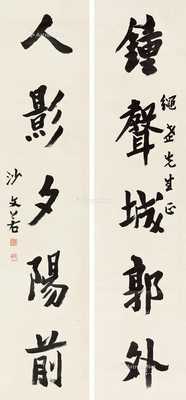 鐘聲城郭外
繩楚先生正
人影夕陽前
沙文若